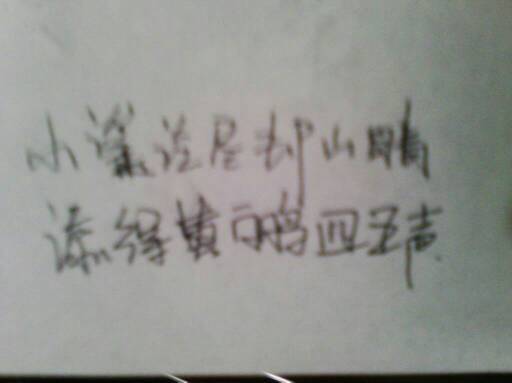 小溪泛尽却山晴
添得黄鹂四五声